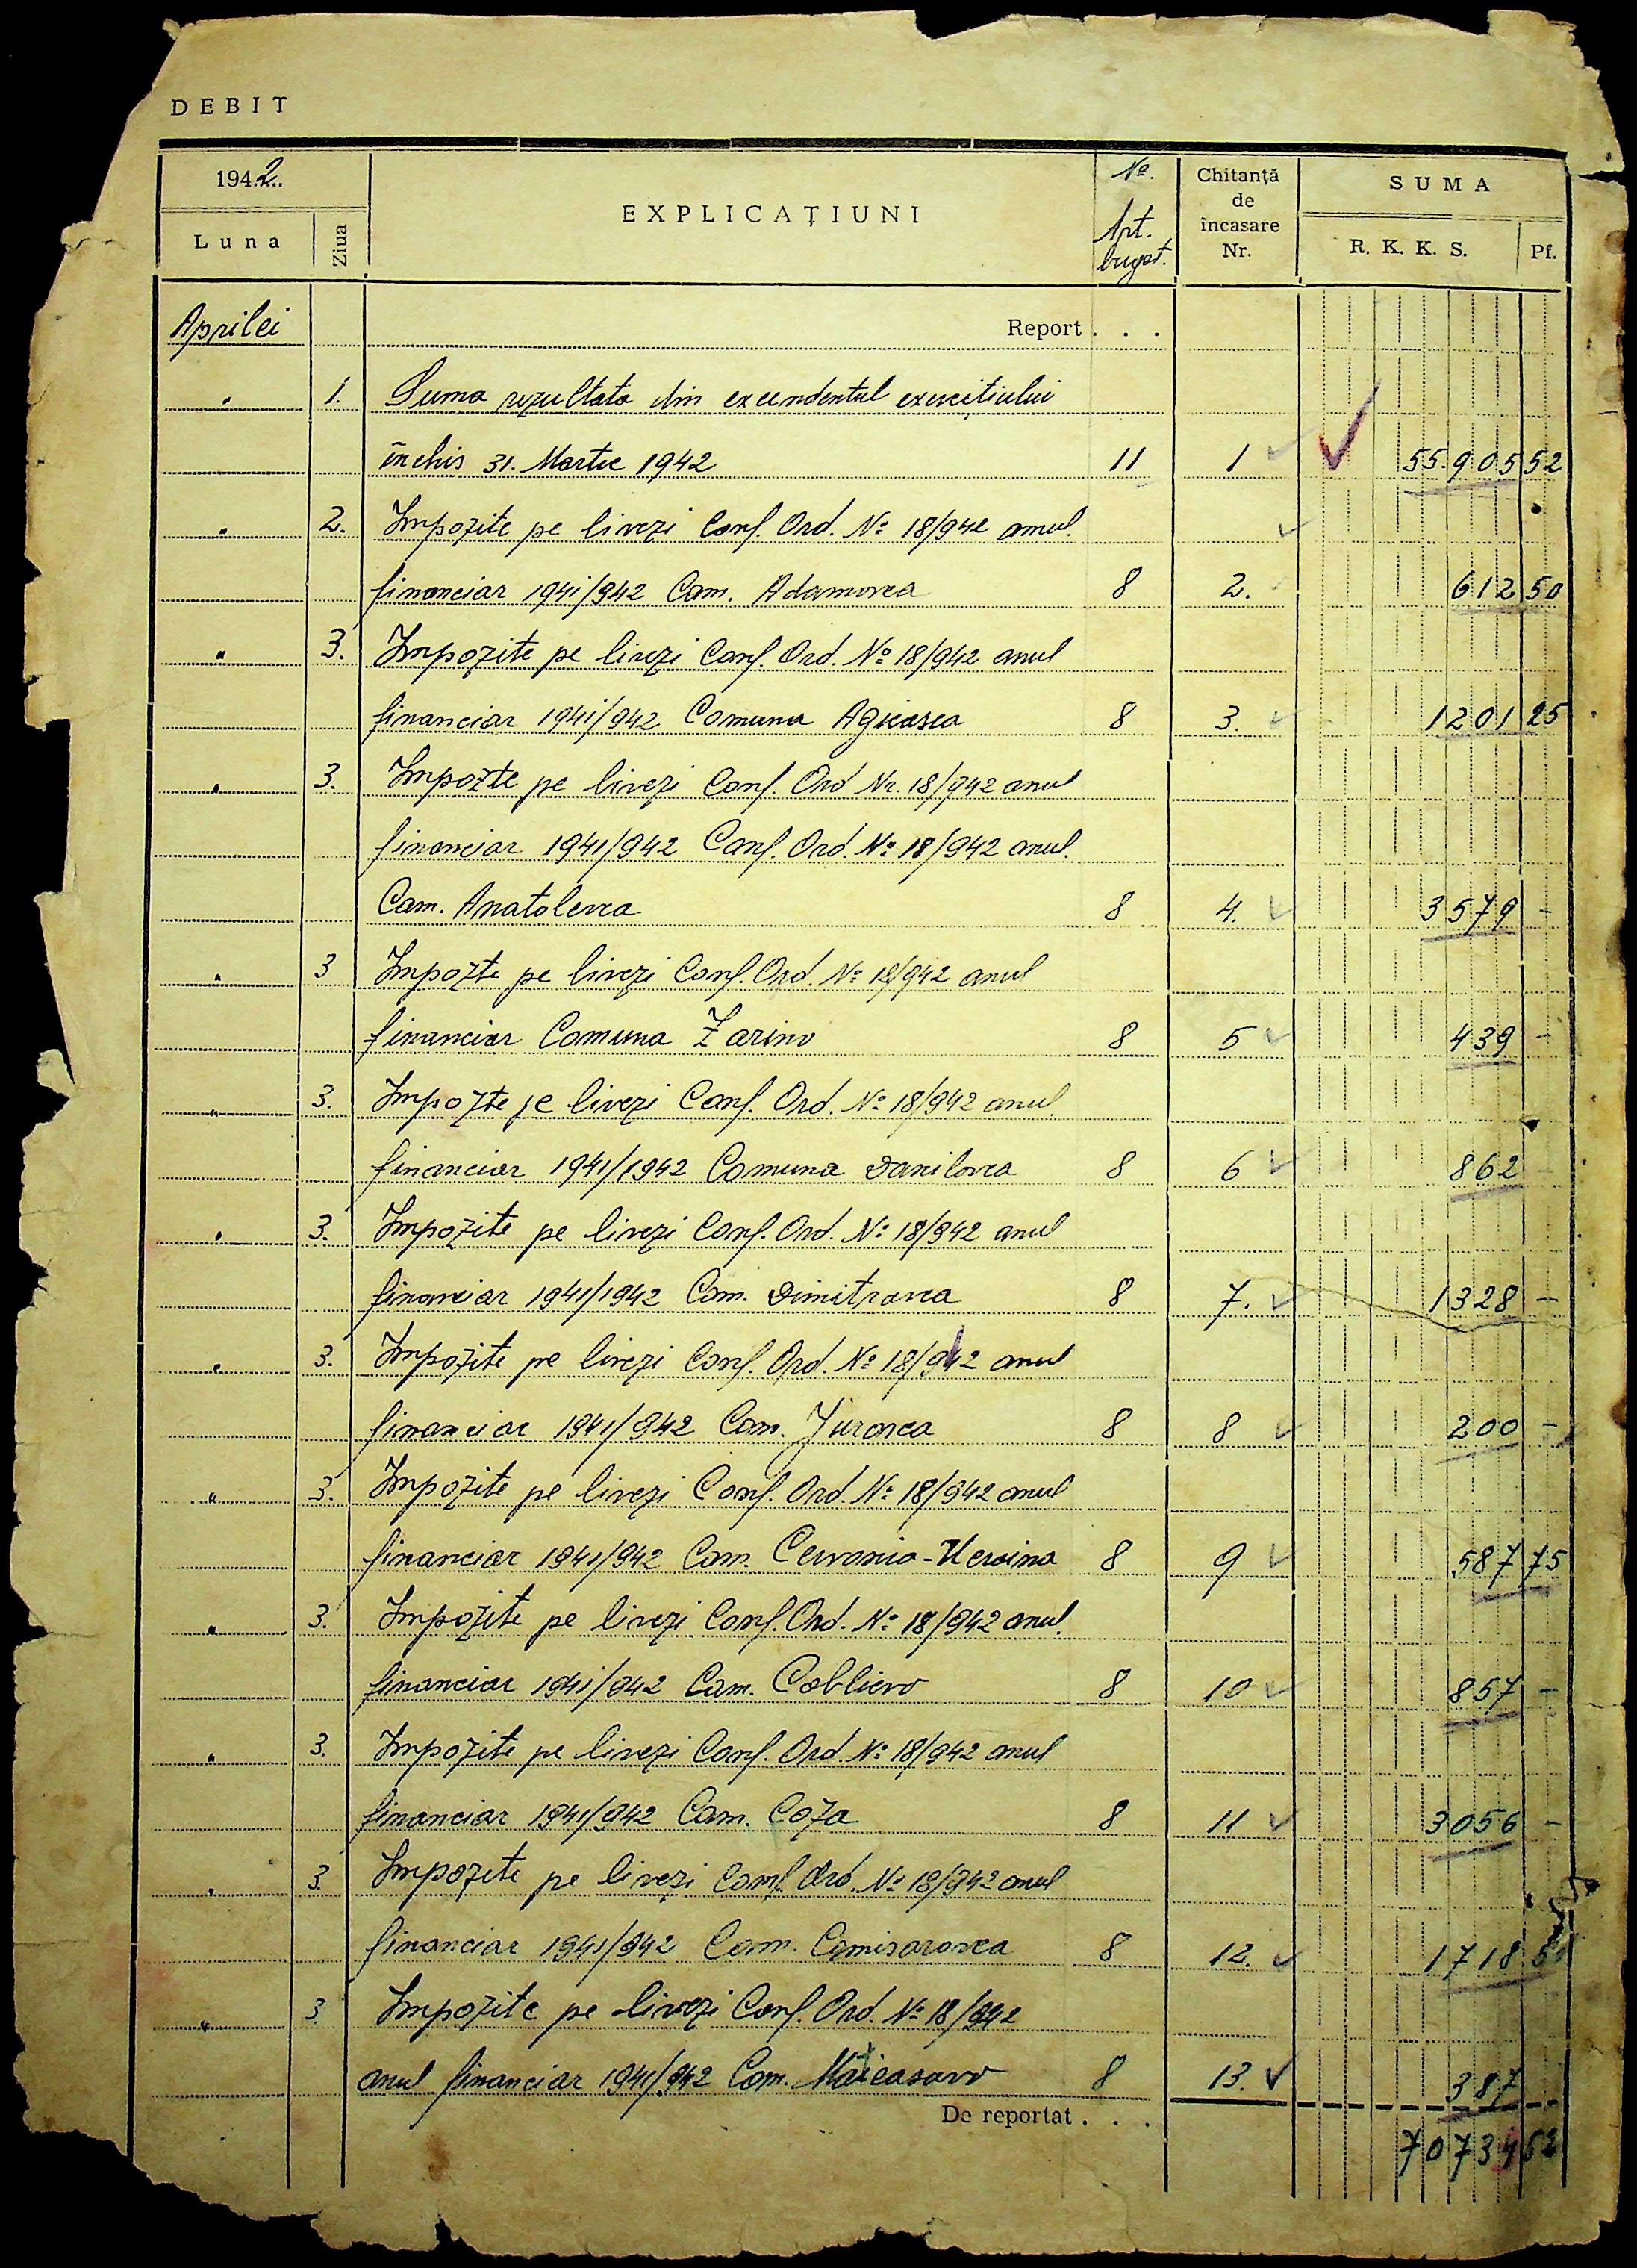 DEBIT
1942..
Luna
Ziua
EXPLICAȚIUNI
No.
Art.
buget.
Chitanță
de
încasare
Nr.
SUMA
R. K. K. S.
Pf.
Aprilei
Report . . .
" 1. Suma rezultata din excendentul exercitiului
închis 31. Martie 1942 11 1 55.905 52
" 2. Impozite pe livezi Conf. Ord. No 18/942 anul.
financiar 1941/942 Com. Adamovca 8 2. 612 50
" 3. Impozite pe livezi Conf. Ord. No 18/942 anul
financiar 1941/942 Comuna Agieasca 8 3. 1201 25
" 3. Impozte pe livezi Conf. Ord Nr. 18/942 anul
financiar 1941/942 Conf. Ord. No 18/942 anul.
Com. Anatolevca 8 4. 3579 -
" 3 Impozte pe livezi Conf. Ord. No 18/942 anul
financiar Comuna Zarino 8 5 439 -
" 3. Impozte pe livezi Conf. Ord. No 18/942 anul
financiar 1941/1942 Comuna Danilovca 8 6 862 -
" 3. Impozite pe livezi Conf. Ord. No 18/942 anul
financiar 1941/1942 Com. Dimitrovca 8 7. 1328 -
" 3. Impozite pe livezi Conf. Ord. No 18/942 anul
financiar 1941/942 Com. Jurovca 8 8 200 -
" 3. Impozite pe livezi Conf. Ord. No 18/942 anul
financiar 1941/942 Com. Cervonio-Ucraina 8 9 587 75
" 3. Impozite pe livezi Conf. Ord. No 18/942 anul.
financiar 1941/942 Com. Coblievo 8 10 857 -
" 3. Impozite pe livezi Conf. Ord. No 18/942 anul
financiar 1941/942 Com. Coza 8 11 3056 -
" 3. Impozite pe livezi Conf. Ord. No 18/942 anul
financiar 1941/942 Com. Comisarovca 8 12. 1718 50
" 3 Impozite pe livezi Conf. Ord. No 18/942
anul financiar 1941/942 Com. 8 13. 387 -
De reportat . . .
70734 52